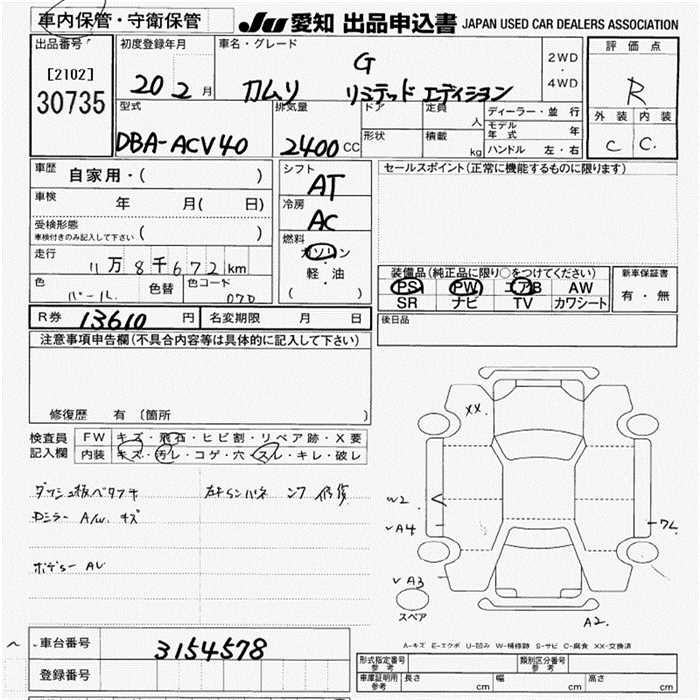 車内保管・守衛保管
JU 愛知 出品申込書 JAPAN USED CAR DEALERS ASSOCIATION
出品番号 初度登録年月 車名・グレード 2WD・4WD 評価点
[2102]
30735
20 2 月 カムリ G リミテッド エディション R
型式 排気量 ドア 定員 人 ディーラー・並行
モデル年式 年
外装 内装
DBA-ACV40 2400 CC 形状 積載 kg ハンドル 左・右 C C.
車歴 自家用・( )
シフト AT
セールスポイント(正常に機能するものに限ります)
車検 年 月( 日)
冷房 AC
受検形態
車検付きのみ記入して下さい ( )
燃料 ガソリン・軽油 ( )
走行 11万8千672km
色 パール. 色替 色コード 070
装備品(純正品に限り○をつけてください) 新車保証書
PS PW エアB AW 有・無
SR ナビ TV カワシート
R券 13610 円 名変期限 月 日
後日品
注意事項申告欄(不具合内容等は具体的に記入して下さい)
修復歴 有 〔箇所 〕
検査員記入欄 FW キズ・飛石・ヒビ割・リペア跡・X要
内装 キズ・汚レ・コゲ・穴・スレ・キレ・破レ
Dミラー A/W. キズ
XX.
W2
✓A4
✓A3
A2.
スペア
A-キズ E-エクボ U-凹み W-補修跡 S-サビ C-腐食 XX-交換済
車台番号 3154578
登録番号
形式指定番号 参考 類別区分番号 参考
車庫証明用 参考 長さ cm 幅 cm 高さ cm